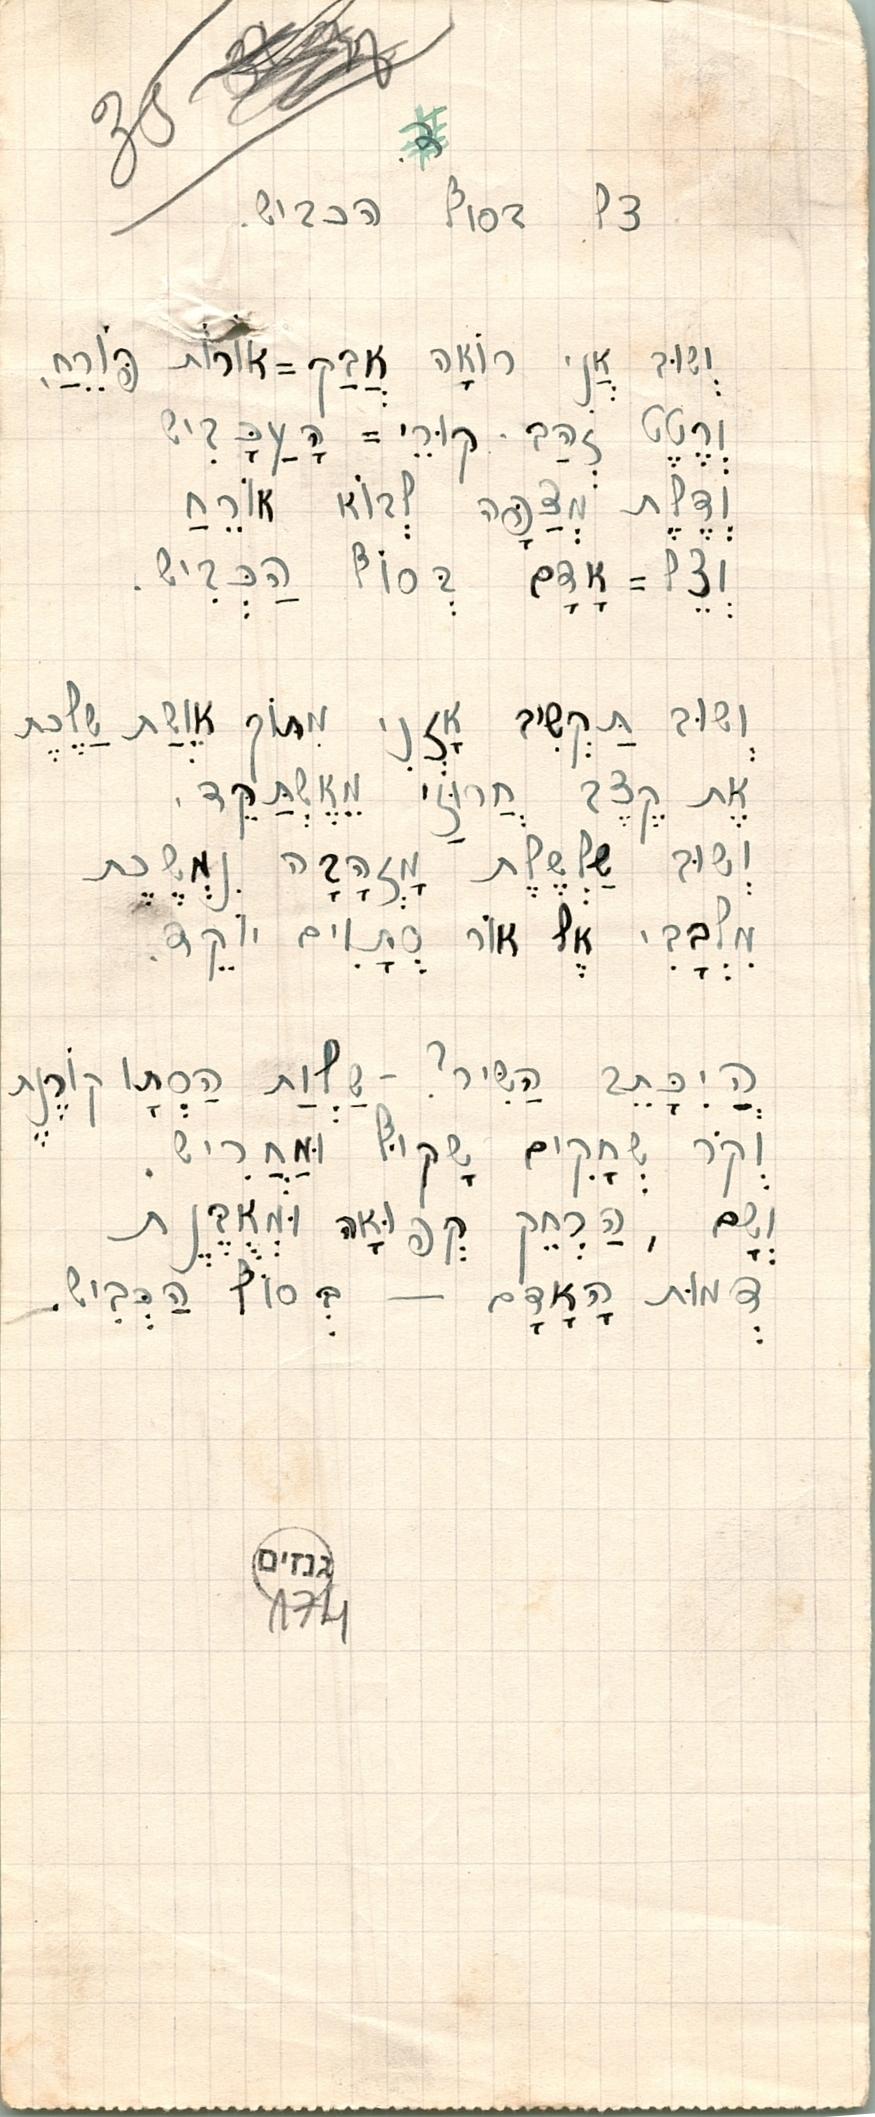 ב.
צל בסוף הכביש.
וְשׁוּב אֲנִי רוֹאָה אֲבַק=אוֹרוֹת פּוֹרֵחַ,
וְרֶטֶט זְהַב. קוּרֵי=הָעַכָּבִישׁ
וְדֶלֶת מְצַפָּה לְבוֹא אוֹרֵחַ
וְצֵל=אָדָם בְּסוֹף הַכְּבִישׁ.
וְשׁוּב תַּקְשִׁיב אָזְנִי מִתּוֹך אֶוְשַׁת שַׁלֶּכֶת
אֶת קֶצֶב חֲרוּזַי מֵאֶשְׁתַּקֵד.
וְשׁוּב שַׁלְשֶׁלֶת מָזְהָבָה נִמְשֶׁכֶת
מִלְּבָבִי אֶל אוֹר סְתָוִים יוֹקֵד.
הֲיִכָּתֵב הַשִּׁיר? – שַׁלְוַת הַסְּתָו קוֹרֶנֶת
וְקֹר שְׁחָקִים שָׁקוּף וּמַחֲרִישׁ.
וְשָׁם, הַרְחֵק קְפוּאָה וּמְאֻבֶּנֶת
דְּמוּת הָאָדָם — בְּסוֹף הַכְּבִישׁ.
גנזים
174